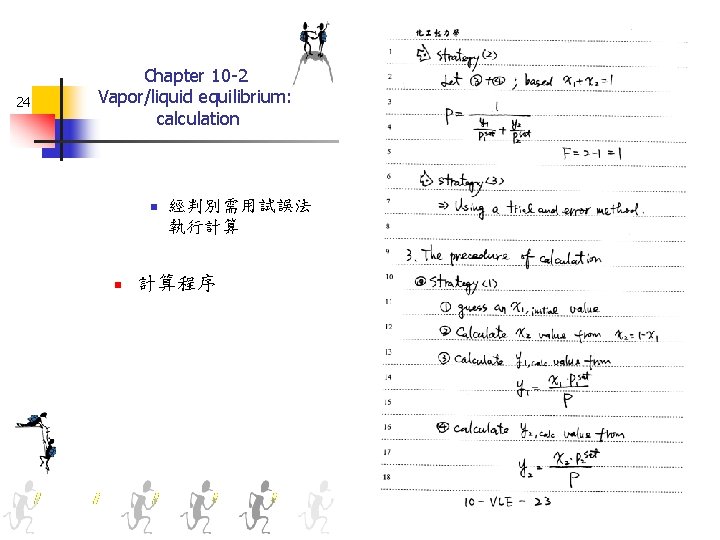 24
Chapter 10-2
Vapor/liquid equilibrium:
calculation
■ 經判別需用試誤法
執行計算
■ 計算程序
化工熱力學
1 strategy (2)
2 Let ③+④ ; based x1+x2=1
3
4 P = 1 / (y1/P1sat + y2/P2sat)
5 F=2-1=1
6 strategy (3)
7 ⇒ Using a trial and error method.
8
9 3. The precedure of calculation
10 strategy (1)
11 ① guess an x1, initial value
12 ② Calculate x2 value from x2=1-x1
13 ③ Calculate y1,calc value from
14 y1 = x1·P1sat / P
15
16 ④ calculate y2,calc value from
17 y2 = x2·P2sat / P
18
10-VLE-23